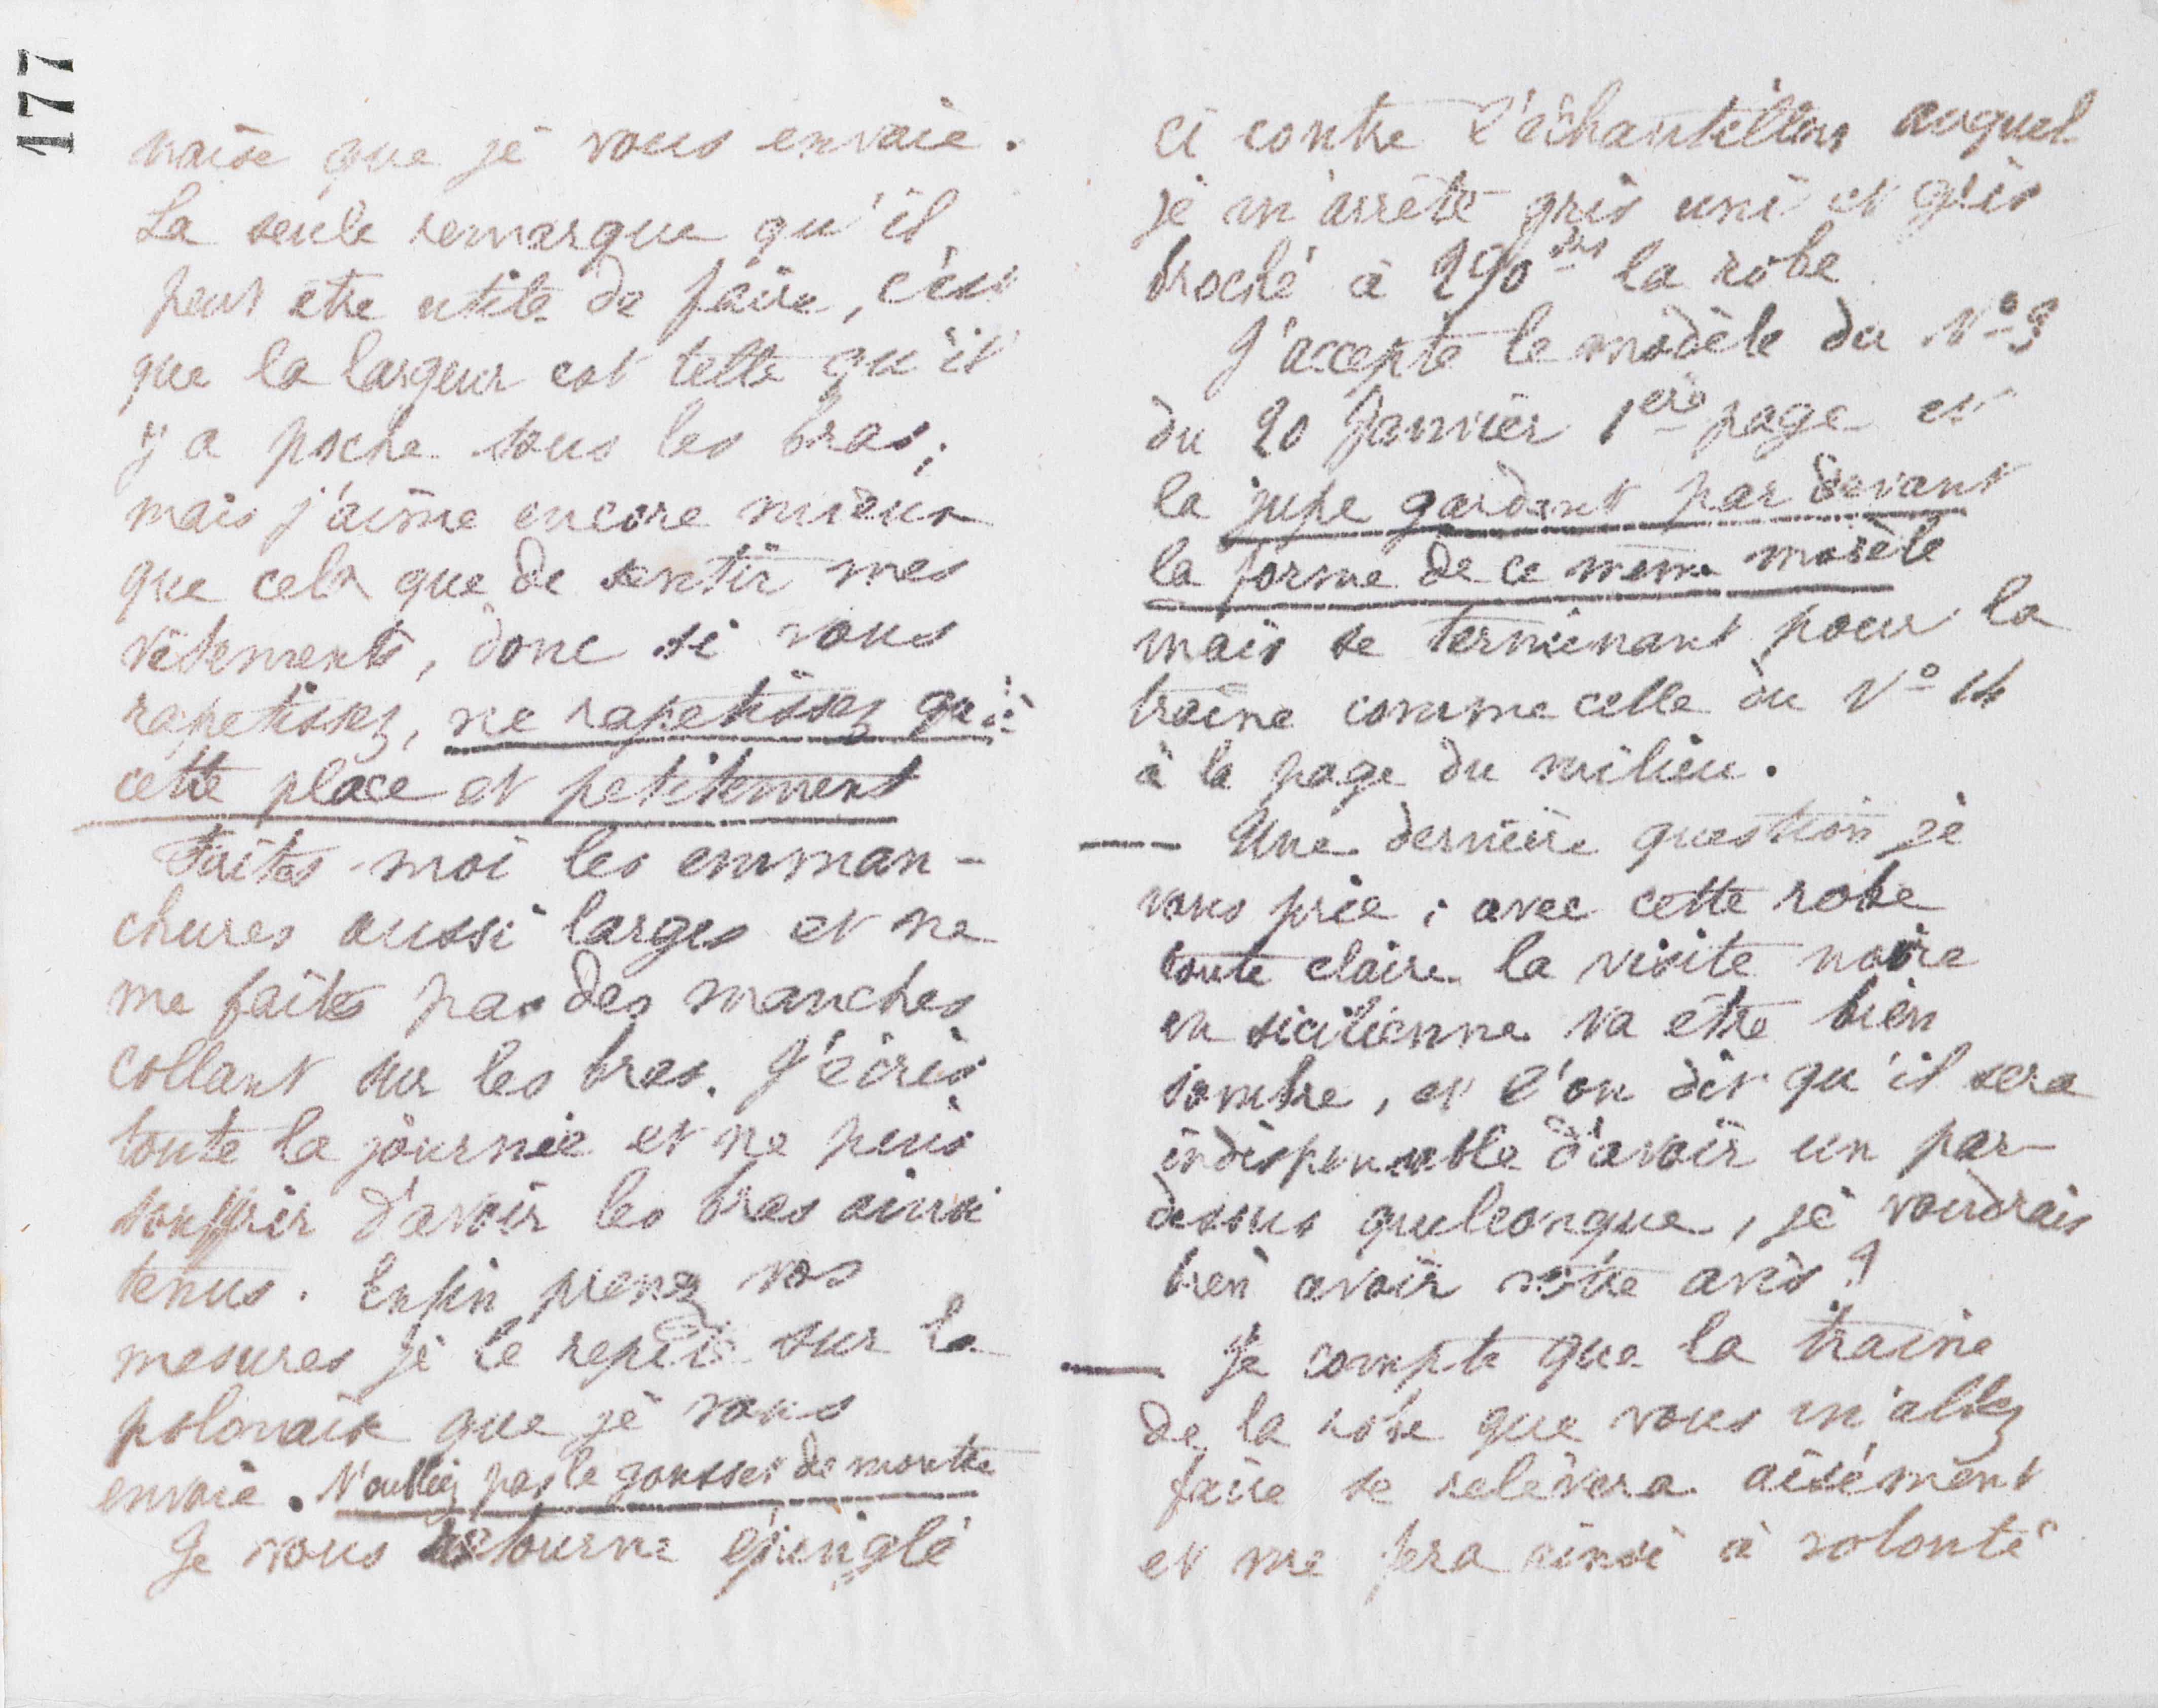 177
naise que je vous envoie.
La seule remarque qu'il
peut etre utile de faire, c'est
que la largeur est telle qu'il
y a poche sous les bras;
mais j'aime encore mieux
que cela que de sentir mes
vêtements, donc si vous
rapetissez, ne rapetissez qu'à
cette place et petitement
Faites moi les emman-
chures aussi larges et ne
me faites pas des manches
collant sur les bras. J'écris
toute la journée et ne puis
souffrir d'avoir les bras ainsi
tenus. Enfin prenez vos
mesures je le repète sur la
polonaise que je vous
envoie. N'oubliez pas le gousset de montre
Je vous retourne épinglé
ci contre l'échantillon auquel
je m'arrête gris uni et gris
broché à 290 frs la robe
J'accepte le modèle du No 3
du 20 Janvier 1ère page et
la jupe gardant par devant
la forme de ce même modèle
mais se terminant pour la
traine comme celle du No 14
à la page du milieu.
— Une dernière question je
vous prie; avec cette robe
toute claire la visite noire
en sicilienne va être bien
sombre, et l'on dit qu'il sera
indispensable d'avoir un par-
dessus qulconque, je voudrais
bien avoir votre avis?
— Je compte que la traine
de la robe que vous m'allez
faire se relèvera aisément
et me fera ainsi à volonté